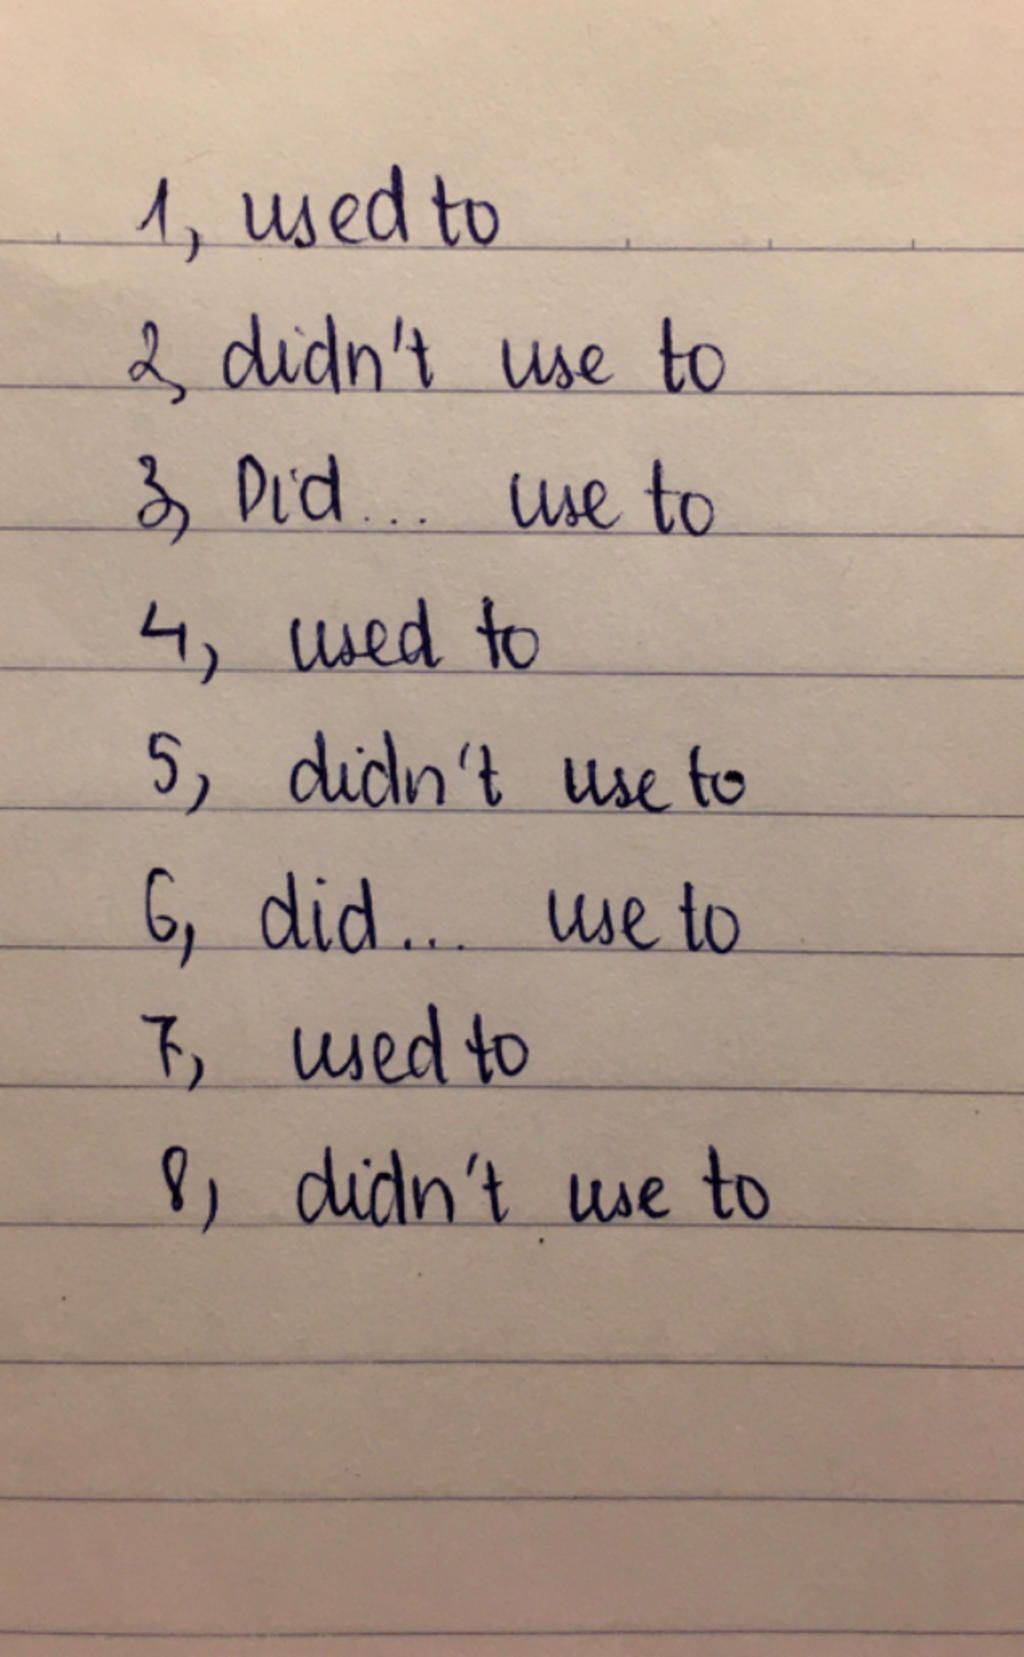 1, used to
2, didn't use to
3, Did... use to
4, used to
5, didn't use to
6, did... use to
7, used to
8, didn't use to